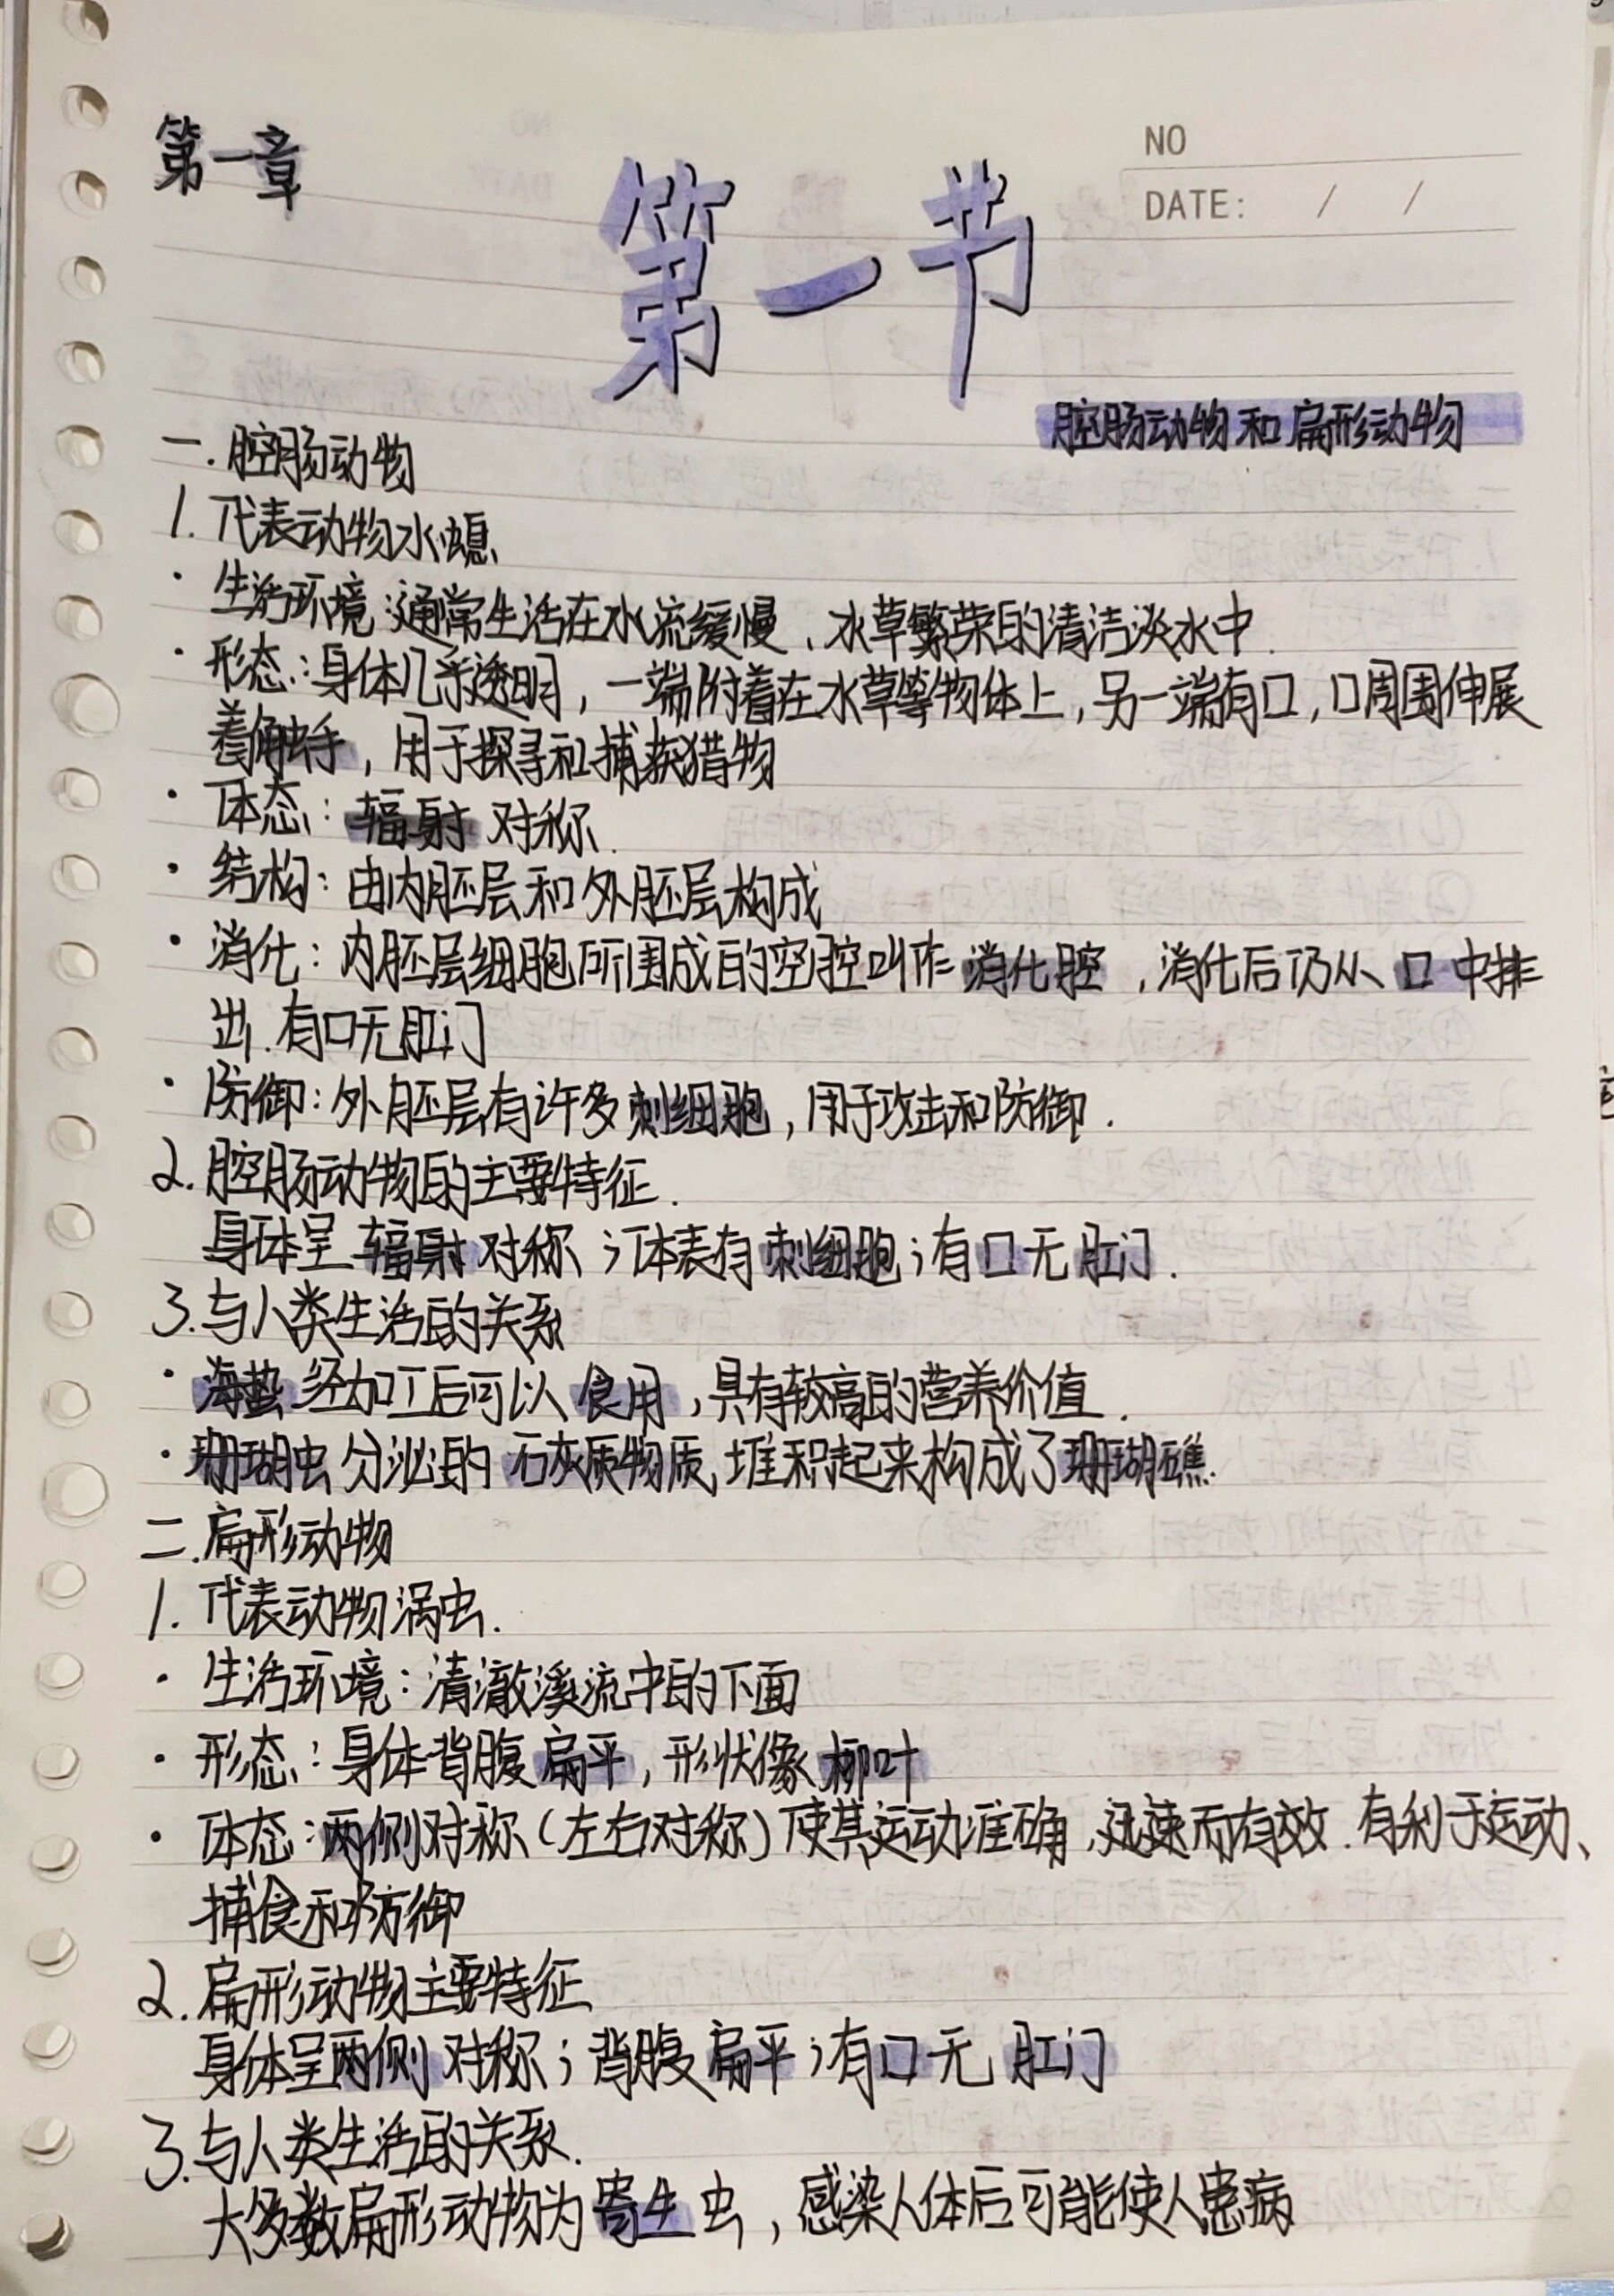 第一章
NO
DATE: / /
第一节
腔肠动物和扁形动物
一.腔肠动物
1.代表动物水螅
·生活环境:通常生活在水流缓慢、水草繁荣的清洁淡水中.
·形态:身体几乎透明,一端附着在水草等物体上,另一端有口,口周围伸展
着触手,用于探寻和捕获猎物
·体态:辐射对称.
·结构:由内胚层和外胚层构成
·消化:内胚层细胞所围成的空腔叫作消化腔,消化后仍从口中排
出.有口无肛门
·防御:外胚层有许多刺细胞,用于攻击和防御.
2.腔肠动物的主要特征.
身体呈辐射对称;体表有刺细胞;有口无肛门.
3.与人类生活的关系
·海蜇经加工后可以食用,具有较高的营养价值.
·珊瑚虫分泌的石灰质物质,堆积起来构成了珊瑚礁.
二.扁形动物
1.代表动物涡虫.
·生活环境:清澈溪流中的下面
·形态:身体背腹扁平,形状像柳叶
·体态:两侧对称(左右对称)使其运动准确、迅速而有效.有利于运动、
捕食和防御
2.扁形动物主要特征
身体呈两侧对称;背腹扁平;有口无肛门
3.与人类生活的关系.
大多数扁形动物为寄生虫,感染人体后可能使人患病